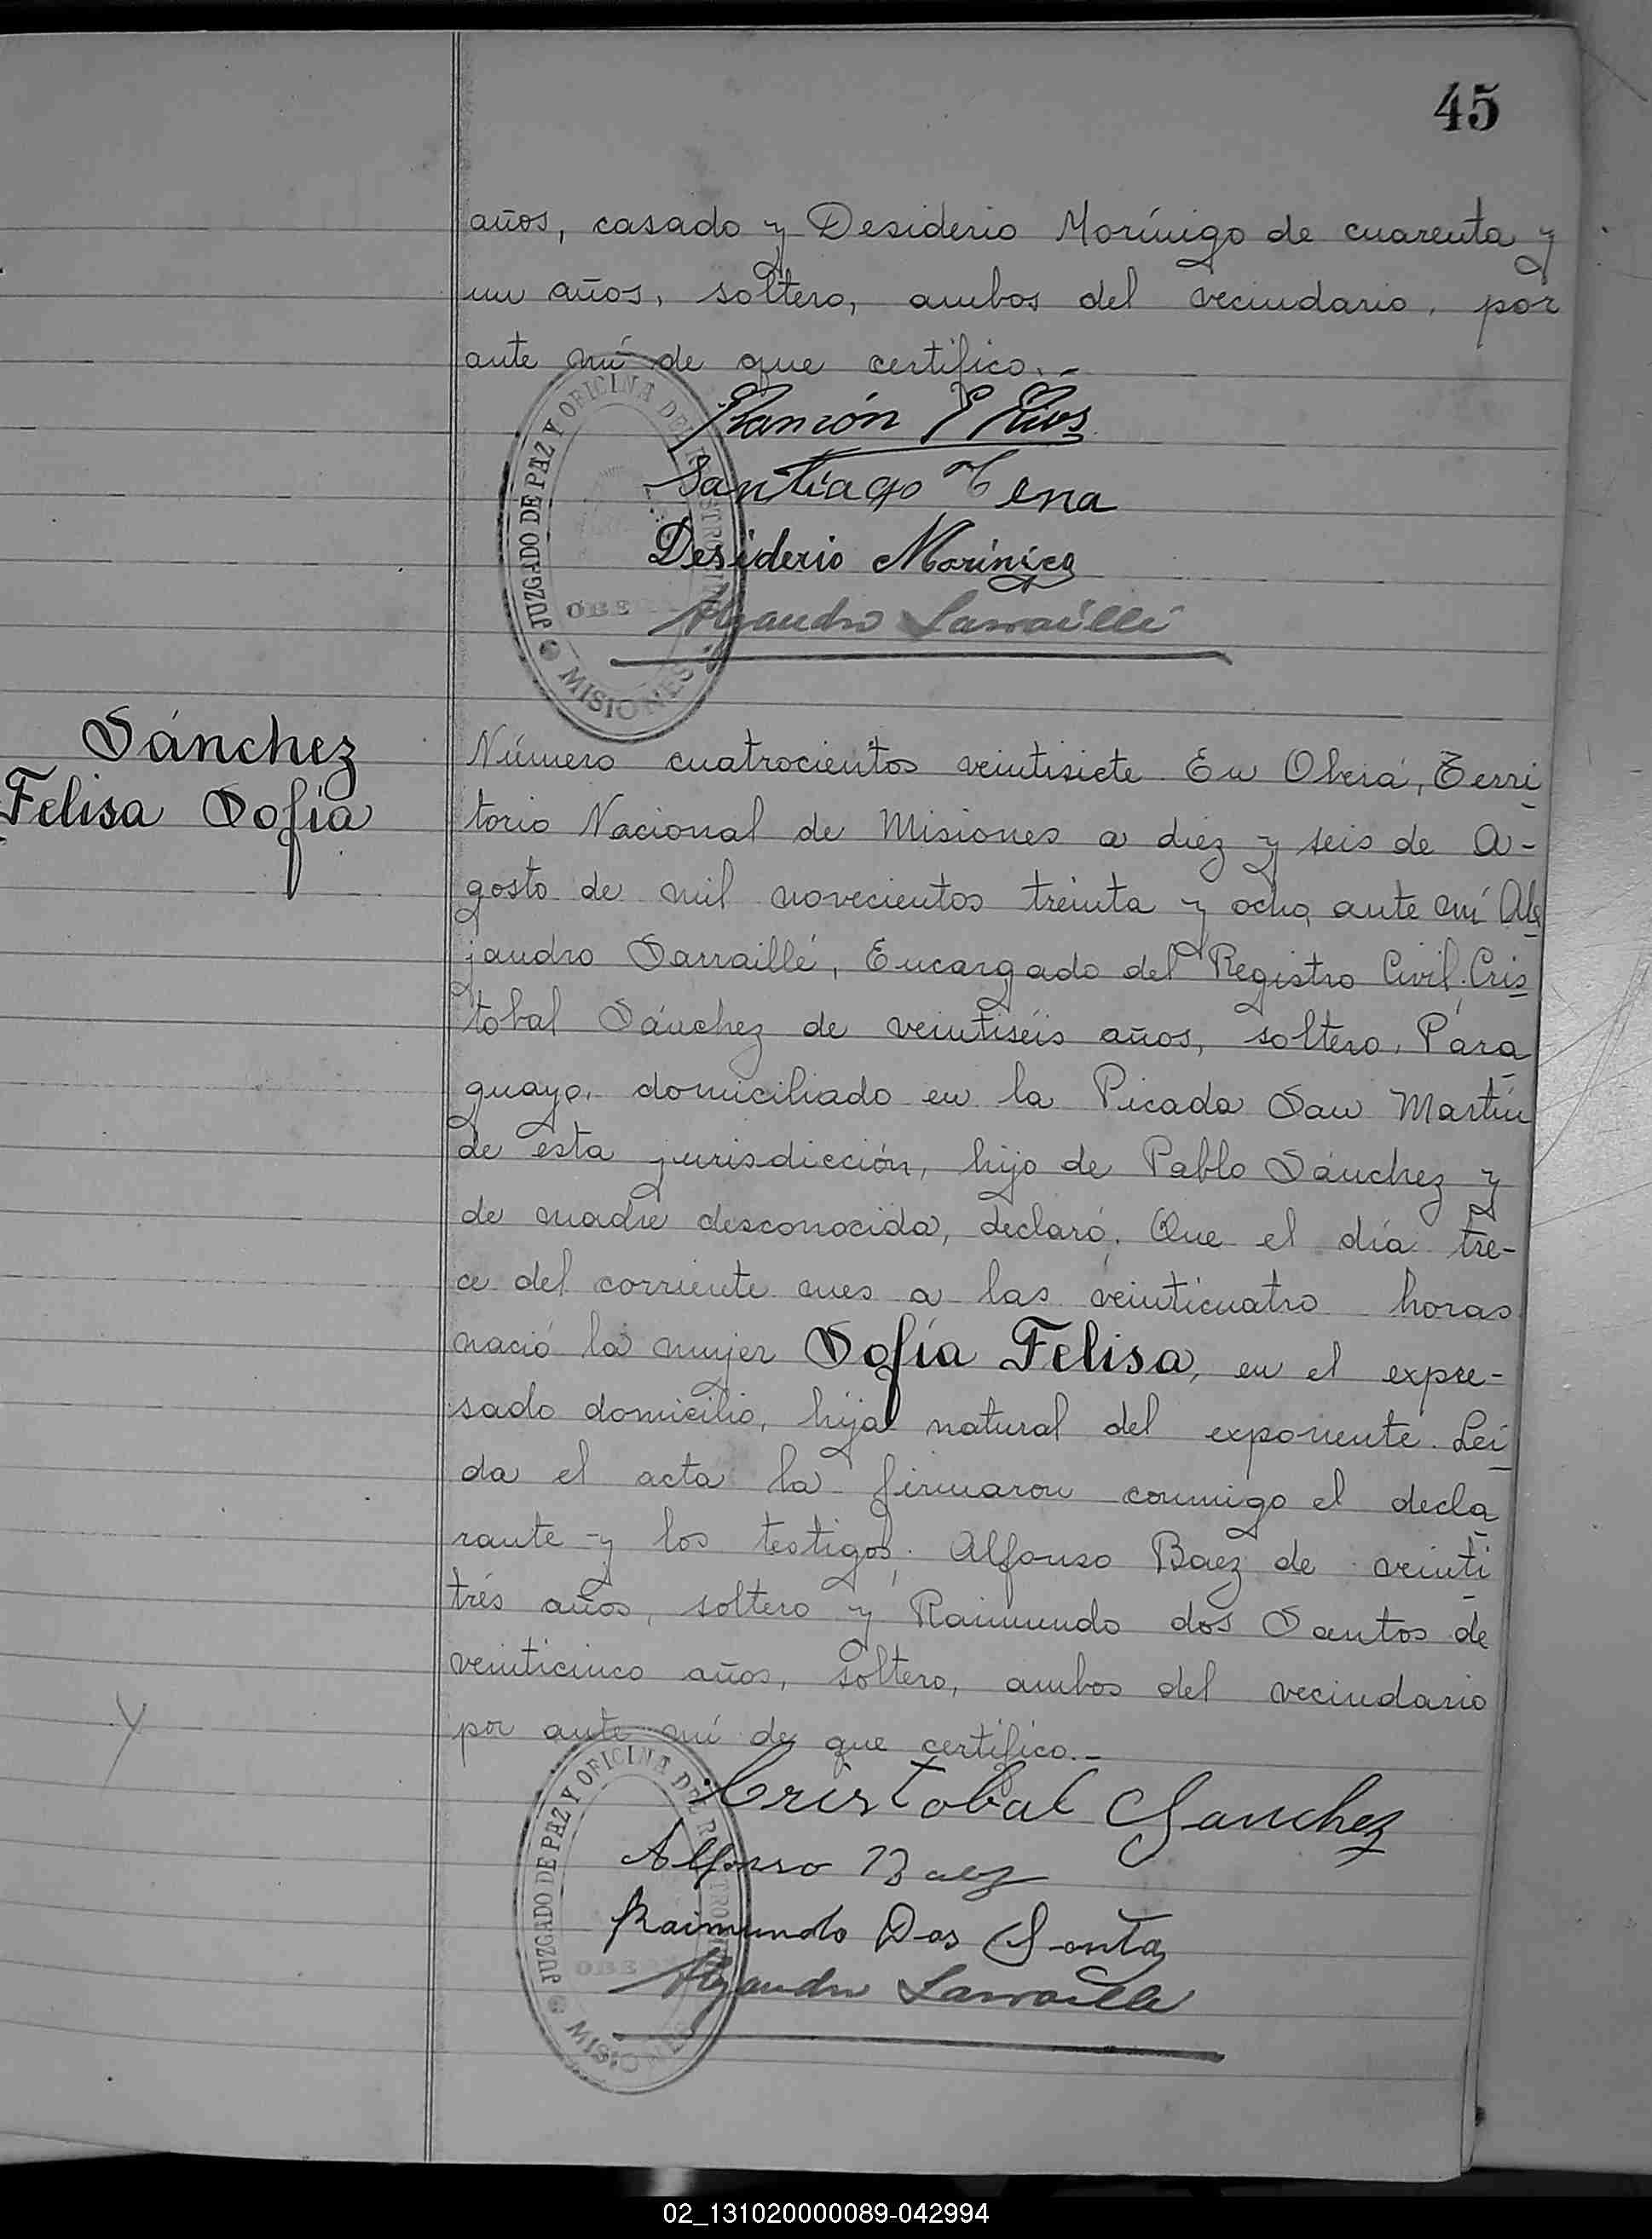 45
años, casado y Desiderio Morínigo de cuarenta y
un años, soltero, ambos del vecindario, por
ante mí de que certifico.-
Ramón
Santiago
Desiderio Morínigo
Alejandro Sarraillé
JUZGADO DE PAZ Y OFICINA DEL REGISTRO
OBERA
MISIONES
Sánchez
Felisa Sofía
Número cuatrocientos veintisiete. En Oberá, Terri
torio Nacional de Misiones a diez y seis de A-
gosto de mil novecientos treinta y ocho, ante mí Ale
jandro Sarraillé, Encargado del Registro Civil. Cris
tobal Sánchez de veintiséis años, soltero, Para
guayo, domiciliado en la Picada San Martín
de esta jurisdicción, hijo de Pablo Sánchez y
de madre desconocida, declaró: Que el día tre-
ce del corriente mes a las veinticuatro horas
nació la mujer Sofía Felisa, en el expre-
sado domicilio, hija natural del exponente. Leí
da el acta la firmaron conmigo el decla
rante y los testigos: Alfonso Baez de veinti
trés años, soltero y Raimundo dos Santos de
veinticinco años, soltero, ambos del vecindario
por ante mí de que certifico.-
Cristobal Sanchez
Alfonso Baez
Raimundo Dos
Alejandro Sarraillé
JUZGADO DE PAZ Y OFICINA DEL REGISTRO
OBERA
MISIONES
02_131020000089-042994